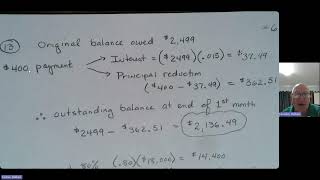 = 6
(13) Original balance owed $2,499
$400 payment → Interest = ($2499)(.015) = $37.49
→ Principal reduction
($400 - $37.49) = $362.51
∴ outstanding balance at end of 1st month
$2499 - $362.51 = $2,136.49
80% (.80)($18,000) = $14,400